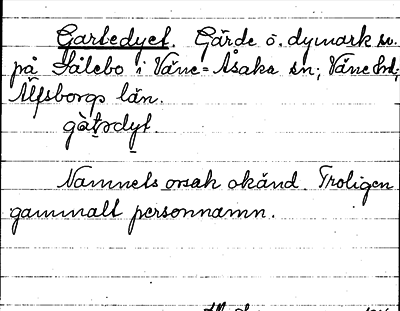 Gartedyet. Gärde o. dymark sv.
på Sålebo i Väne-Åsaka sn; Väne hd;
Älfsborgs län.
gàt̩ədyt.
Namnets orsak okänd. Troligen
gammalt personnamn.